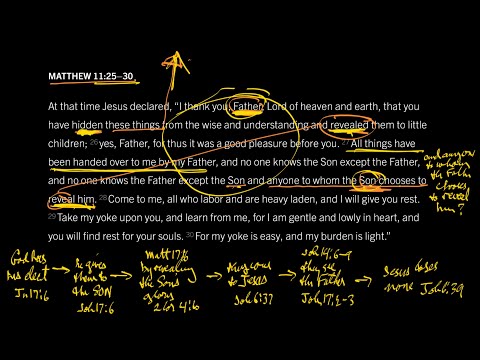 MATTHEW 11:25–30
At that time Jesus declared, “I thank you, Father, Lord of heaven and earth, that you
have hidden these things from the wise and understanding and revealed them to little
children; 26 yes, Father, for thus it was a good pleasure before you. 27 All things have
been handed over to me by my Father, and no one knows the Son except the Father,
and no one knows the Father except the Son and anyone to whom the Son chooses to
reveal him. 28 Come to me, all who labor and are heavy laden, and I will give you rest.
29 Take my yoke upon you, and learn from me, for I am gentle and lowly in heart, and
you will find rest for your souls. 30 For my yoke is easy, and my burden is light.”
and anyone
to whom
the Father
chooses
to reveal
him?
God has
his elect
Jn 17:6
he gives
them to
the SON
Joh 17:6
Matt 17/6
by revealing
the Son's
glory
2 Cor 4:6
they come
to Jesus
Joh 6:37
Joh 14:6-9
they see
the Father
Joh 17:2-3
Jesus loses
none Joh 6:39